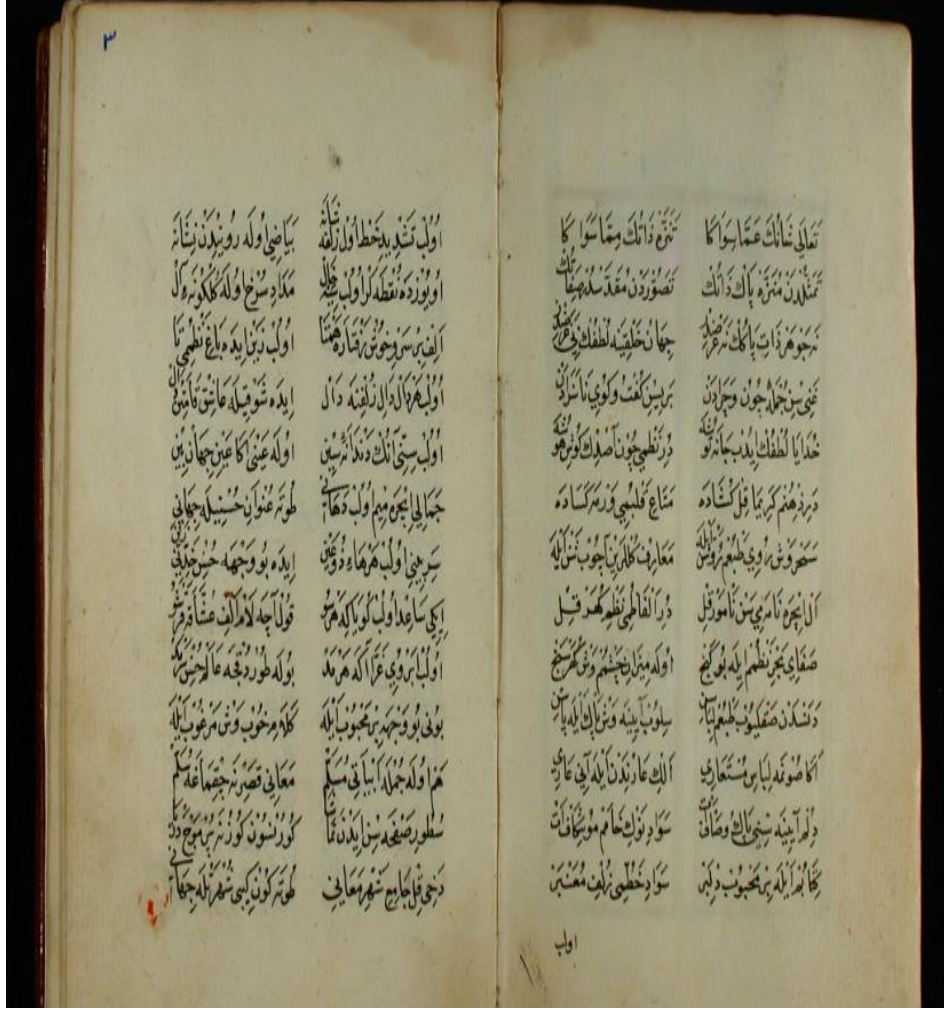 تَعَالٰى شَانُكَ عَمَّا سَوَاكَا تَنَزَّهَ ذَاتُكَ مِمَّا سَوَا كَا
تمثلدن منزه پاك ذاتك تصوردن مقدسدر صفاتك
نه جوهر ذات پاكك نه عرضدر جهان خلقینه لطفك بی غرضدر
غنی سن جمله چون وچرادن بریسن كفت وكوی ناسزادن
خدایا لطفك ایدب جانه توشه در نظمی چون آصدك كوش هوشه
در ذهنم كرمها قل كشاده متاع قلبمی ورمه كساده
سحروش روی طبعم روشن ایله معارف كللرین آچوب شن ایله
ال ایچره نامه می سن نامور قل در الفاظمی نظم كهر قل
صفای بحر نظمم ایله بو كنج اوله میزان چشمم وش كهر سنج
دنسدن صقلیوب طبعم لباسن سلوب آیینه وش پاك ایله پاسن
اكا صونمه لباس مستعاری الك عارندن ایله آنی عاری
دلم آیینه سنی پاك وصاف ات سواد نوك خامم موشكاف ات
كتابم ایله بر محبوب دلبر سواد خطمی زلف معنبر
اولب
٣
اولب تشدید خط اول زلفه شانه بیاضی اوله رویندن نشانه
اویوزده نقطه لر اولب سیه خال مداد سرخ اوله كلكونه آل
الف بر سرو خوش رفتاره همتا اولب زین ایده باغ نظمی تا
اولب هر دال دال زلفنه دال ایده شوقیله عاشق قامتن دال
اولب سنی آنك دندانه سین اوله عینی اكا عین جهان بین
جمالی ایچره میم اولب دهانی طوته عنوان حسنیله جهانی
سر مینی اولب هر هاء ذو عین ایده بو وجهه حسن خدنی
ایكی ساعد اولب كویاكه هر سو قول آچه لام الف عشاقه قرشو
اولب ابروی غرا اكه هر مد بوله طوردقجه عالم حسن سرمد
بونی بو وجهه بر محبوب ایله كلامم خوب وش مرغوب ایله
هم اوله جمله ابیاتی مسلم معانی قصرینه چقمأغه سلم
سطور صفحه سن ایدن تماشا كورنسون كوزنه پر موج دریا
دخی قل جامع شهر معانی طوته كون كبی شهرتله جهانی